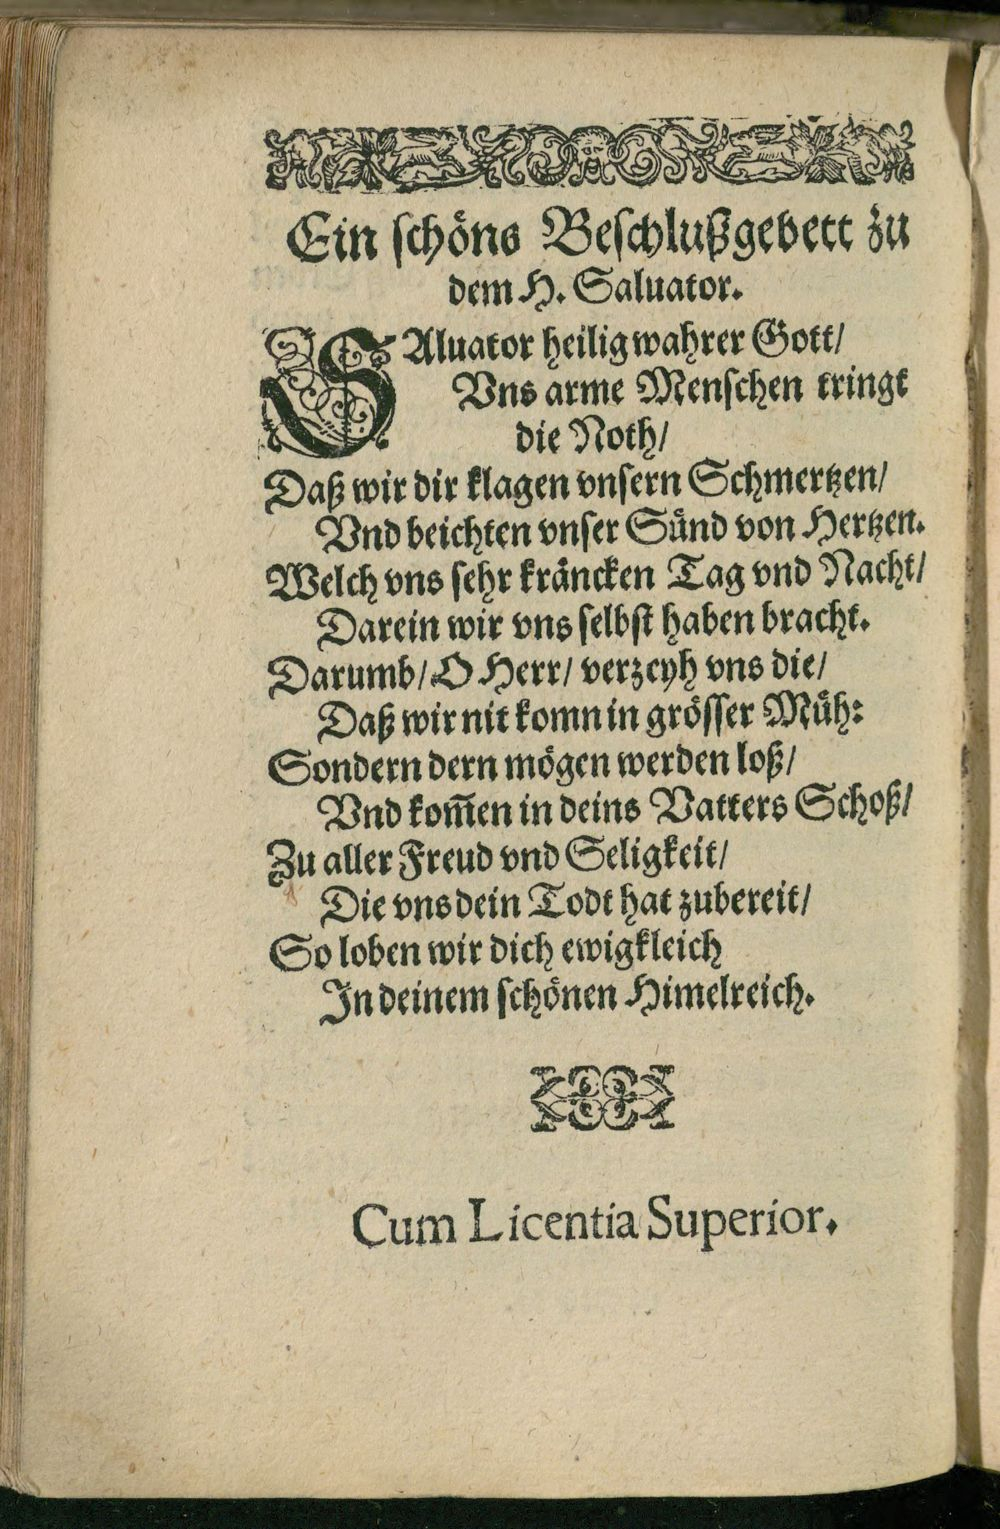 Ein schöns Beschlußgebett zu
dem H. Saluator.
SAluator heilig wahrer Gott/
Vns arme Menschen tringt
die Noth/
Daß wir dir klagen vnsern Schmertzen/
Vnd beichten vnser Sünd von Hertzen.
Welch vns sehr kräncken Tag vnd Nacht/
Darein wir vns selbst haben bracht.
Darumb/ O Herr/ verzeyh vns die/
Daß wir nit komn in grösser Müh:
Sondern dern mögen werden loß/
Vnd kom̃en in deins Vatters Schoß/
Zu aller Freud vnd Seligkeit/
Die vns dein Todt hat zubereit/
So loben wir dich ewigkleich
In deinem schönen Himelreich.
Cum Licentia Superior.